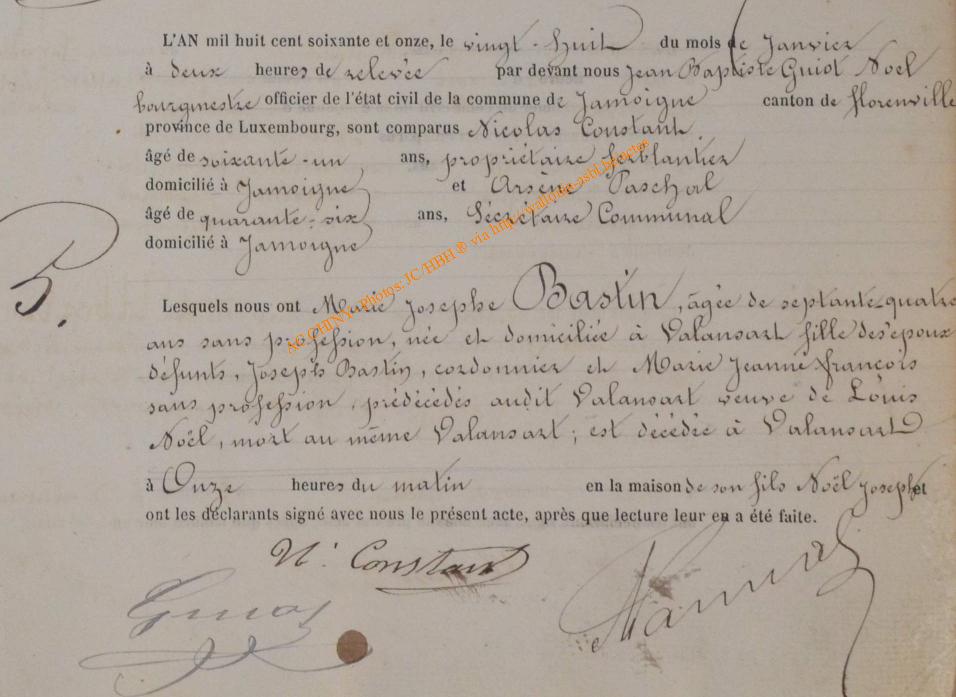 L'AN mil huit cent soixante et onze, le vingt-huit du mois de Janvier
à deux heures de relevée par devant nous Jean Baptiste Guiot Noel
bourgmestre officier de l'état civil de la commune de Jamoigne canton de florenville
province de Luxembourg, sont comparus Nicolas Constant
âgé de soixante-un ans, propriétaire ferblantier
domicilié à Jamoigne et Arsène Paschal
âgé de quarante-six ans, Sécrétaire Communal
domicilié à Jamoigne
5.
Lesquels nous ont Marie Josephe Bastin, âgée de septante-quatre
ans sans profession, née et domiciliée à Valansart fille des époux
défunts, Joseph Bastin, cordonnier et Marie Jeanne françois
sans profession, prédécédés audit Valansart veuve de Louis
Noël, mort au même Valansart; est décédée à Valansart
à Onze heures du matin en la maison de son fils Noël Joseph et
ont les déclarants signé avec nous le présent acte, après que lecture leur en a été faite.
N. Constant
AC CHINY - Photos: JC/HBH ® via http://wallonia-asbl.be/actes